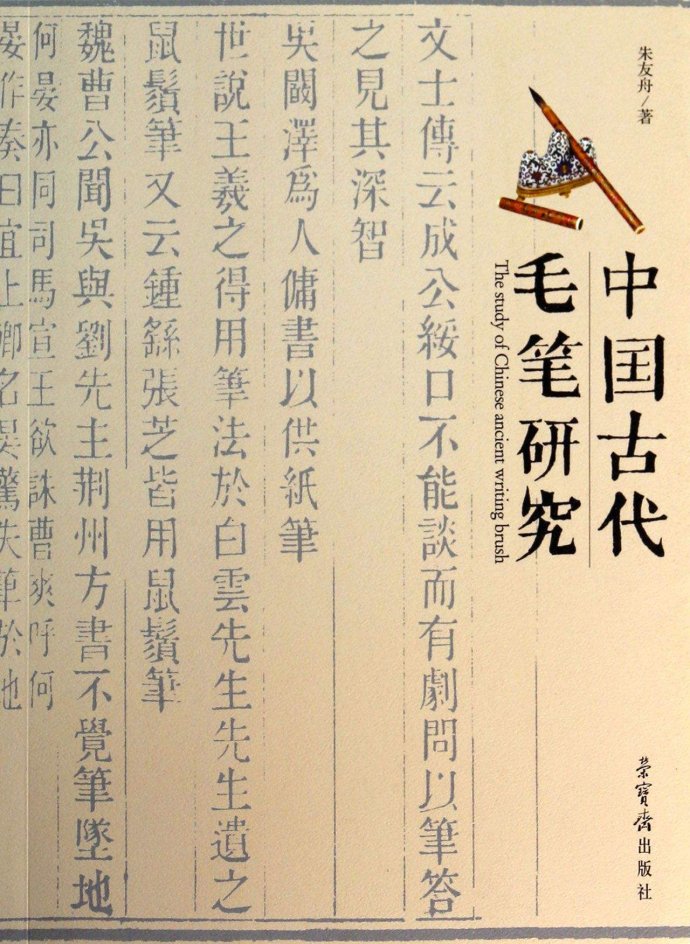 朱友舟/著
中囯古代
毛笔研究
The study of Chinese ancient writing brush
榮寶齋出版社
文士傳云成公綏口不能談而有劇問以筆答
之見其深智
吳闞澤爲人傭書以供紙筆
世說王羲之得用筆法於白雲先生先生遺之
鼠鬚筆又云鍾繇張芝皆用鼠鬚筆
魏曹公聞吳與劉先主荆州方書不覺筆墜地
何晏亦同司馬宣王欲誅曹爽呼何
晏作奏曰宜上卿名晏驚失筆於地